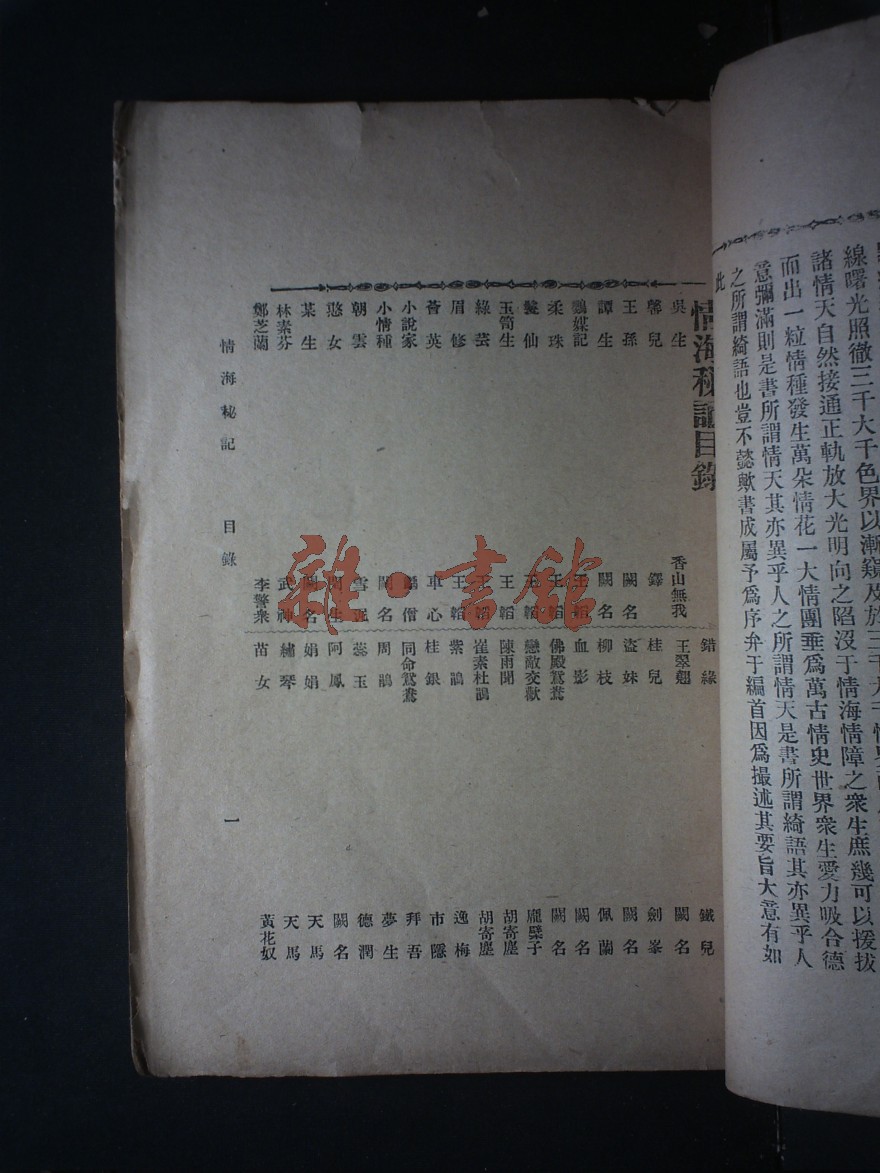 線曙光照徹三千大千色界以漸窺及於三千大千情界
諸情天自然接通正軌放大光明向之陷沒于情海情障之衆生庶幾可以援拔
而出一粒情種發生萬朵情花一大情團垂爲萬古情史世界衆生愛力吸合德
意彌滿則是書所謂情天其亦異乎人之所謂情天是書所謂綺語其亦異乎人
之所謂綺語也豈不懿歟書成屬予爲序弁于編首因爲撮述其要旨大意有如
此
情海秘記目錄
吳生 香山無我
馨兒 鐸
王孫 闕名
譚生 闕名
鵑媒記 王韜
柔珠 王韜
鬘仙 王韜
玉筍生 王韜
綠芸 王韜
眉修 王韜
薈英 車心
小說家 僧
小情種 闕名
朝雲 雪
憨女 生
某生 闕名
林素芬 武神
鄭芝蘭 李警衆
錯緣 鐵兒
王翠翹 闕名
桂兒 劍峯
盜妹 闕名
柳枝 佩蘭
血影 闕名
佛殿鴛鴦 闕名
戀敵交歡 龐檗子
陳雨閒 胡寄塵
崔素杜鵑 胡寄塵
紫鵑 逸梅
桂銀 市隱
同命鴛鴦 拜吾
周鵑 夢生
蕊玉 德潤
阿鳳 闕名
娟娟 天馬
繡琴 天馬
苗女 黃花奴
情海秘記 目錄 一
雜·書館